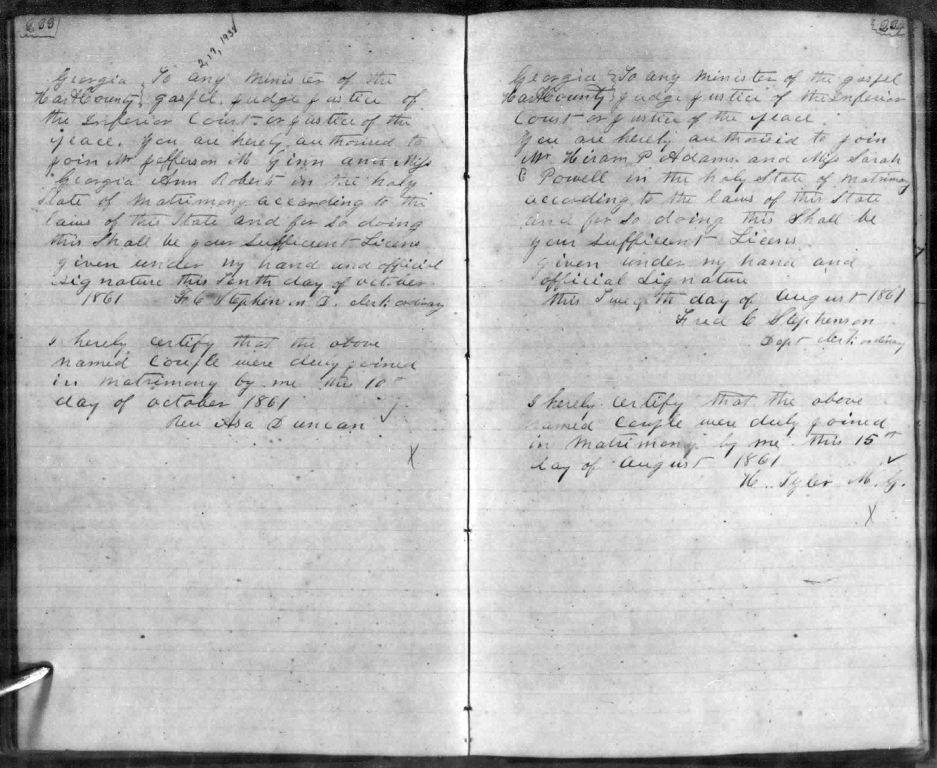 233
2,19,1938
Georgia } To any Minister of the
Hart County } gospel, judge justice of
the Inferior Court or justice of the
peace. You are hereby authorised to
join Mr Jefferson M Ginn and Miss
Georgia Ann Robert in the holy
State of Matrimony according to the
laws of this State and for so doing
this Shall be your Sufficient Licens
given under my hand and official
Signature this Tenth day of october
1861 F. C Stephenson D. clerk ordinary
I hereby certify that the above
named Couple were duly joined
in Matrimony by me this 10th
day of october 1861
Rev Asa Duncan
X
234
Georgia } To any Minister of the gospel
Hart County } judge justice of the Inferior
Court or justice of the peace.
You are hereby authorised to join
Mr Hiram P Adams and Miss Sarah
E Powell in the holy State of Matrimony
according to the laws of this State
and for So doing this Shall be
your Sufficent Licens
given under my hand and
official Signature
this day of August 1861
Fred C Stephenson
Dept clerk ordinary
I hereby certify that the above
named Couple were duly joined
in Matrimony by me this 15th
day of August 1861
H. Tyler M. G.
X